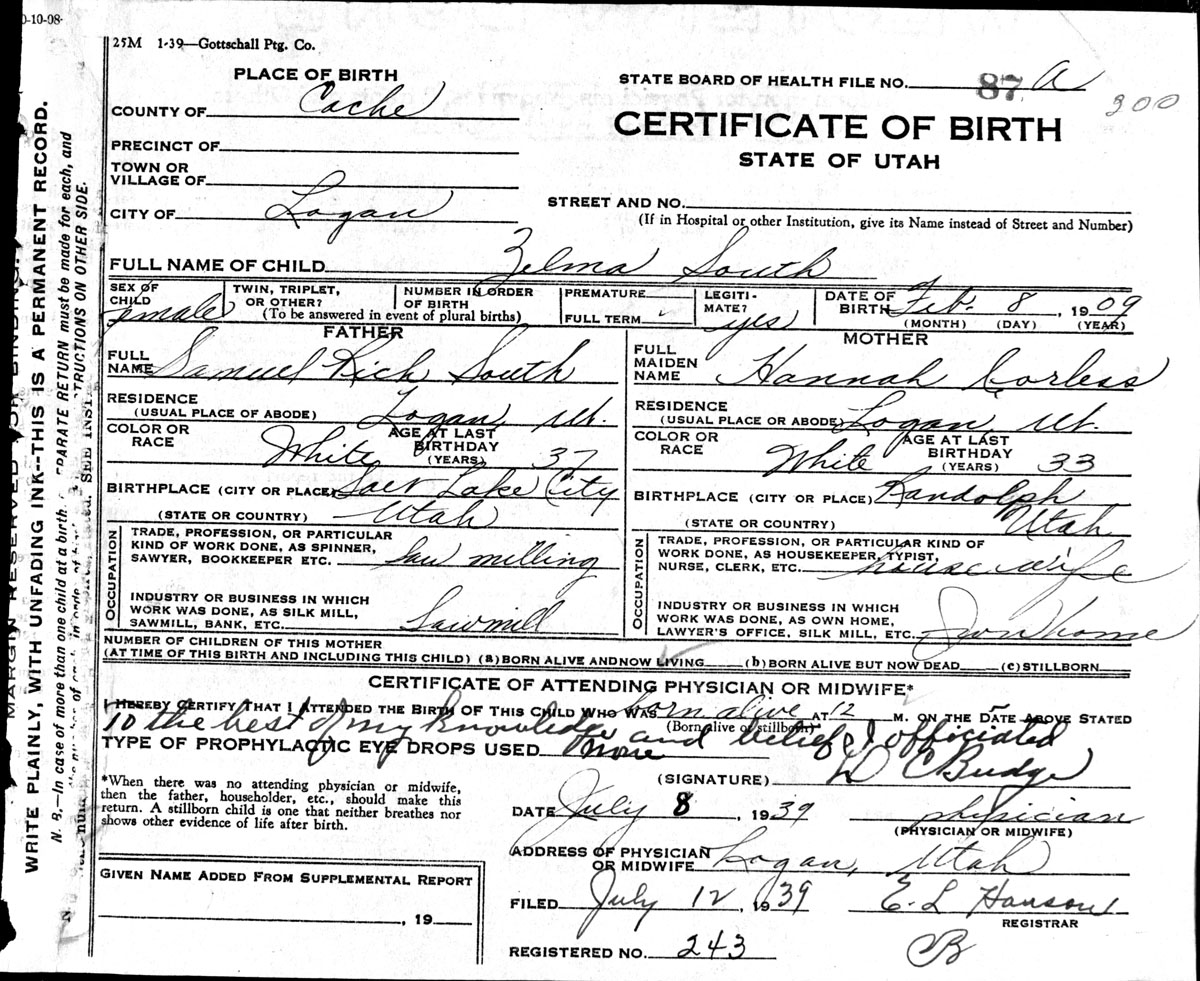 0-10-08-
25M 1-39—Gottschall Ptg. Co.
PLACE OF BIRTH
COUNTY OF Cache
PRECINCT OF
TOWN OR
VILLAGE OF
CITY OF Logan
STATE BOARD OF HEALTH FILE NO. 87 A
200
CERTIFICATE OF BIRTH
STATE OF UTAH
STREET AND NO.
(If in Hospital or other Institution, give its Name instead of Street and Number)
FULL NAME OF CHILD Zelma South
SEX OF
CHILD female
TWIN, TRIPLET,
OR OTHER?
NUMBER IN ORDER
OF BIRTH
(To be answered in event of plural births)
PREMATURE
FULL TERM
LEGITI-
MATE? yes
DATE OF
BIRTH Feb. 8, 1909
(MONTH) (DAY) (YEAR)
FATHER
FULL
NAME Samuel Rich South
RESIDENCE
(USUAL PLACE OF ABODE) Logan, Ut.
COLOR OR
RACE White
AGE AT LAST
BIRTHDAY
(YEARS) 37
BIRTHPLACE (CITY OR PLACE) Salt Lake City
(STATE OR COUNTRY) Utah
OCCUPATION
TRADE, PROFESSION, OR PARTICULAR
KIND OF WORK DONE, AS SPINNER,
SAWYER, BOOKKEEPER ETC. Saw milling
INDUSTRY OR BUSINESS IN WHICH
WORK WAS DONE, AS SILK MILL,
SAWMILL, BANK, ETC. Sawmill
MOTHER
FULL
MAIDEN
NAME Hannah Corless
RESIDENCE
(USUAL PLACE OF ABODE) Logan, Ut.
COLOR OR
RACE White
AGE AT LAST
BIRTHDAY
(YEARS) 33
BIRTHPLACE (CITY OR PLACE) Randolph
(STATE OR COUNTRY) Utah
OCCUPATION
TRADE, PROFESSION, OR PARTICULAR KIND OF
WORK DONE, AS HOUSEKEEPER, TYPIST,
NURSE, CLERK, ETC. house wife
INDUSTRY OR BUSINESS IN WHICH
WORK WAS DONE, AS OWN HOME,
LAWYER'S OFFICE, SILK MILL, ETC. Own home
NUMBER OF CHILDREN OF THIS MOTHER
(AT TIME OF THIS BIRTH AND INCLUDING THIS CHILD) (a) BORN ALIVE AND NOW LIVING (b) BORN ALIVE BUT NOW DEAD (c) STILLBORN
CERTIFICATE OF ATTENDING PHYSICIAN OR MIDWIFE*
I HEREBY CERTIFY THAT I ATTENDED THE BIRTH OF THIS CHILD WHO WAS born alive AT 12 M. ON THE DATE ABOVE STATED
(Born alive or stillborn)
To the best of my knowledge and belief I officiated
TYPE OF PROPHYLACTIC EYE DROPS USED None
*When there was no attending physician or midwife,
then the father, householder, etc., should make this
return. A stillborn child is one that neither breathes nor
shows other evidence of life after birth.
(SIGNATURE) D C Budge
DATE July 8, 1939 physician
(PHYSICIAN OR MIDWIFE)
ADDRESS OF PHYSICIAN
OR MIDWIFE Logan, Utah
FILED July 12, 1939 E. L Hanson
REGISTRAR
REGISTERED NO. 243
CB
GIVEN NAME ADDED FROM SUPPLEMENTAL REPORT
, 19
MARGIN RESERVED FOR BINDING
WRITE PLAINLY, WITH UNFADING INK--THIS IS A PERMANENT RECORD.
N. B.—In case of more than one child at a birth, SEPARATE RETURN must be made for each, and
stated. SEE INSTRUCTIONS ON OTHER SIDE.